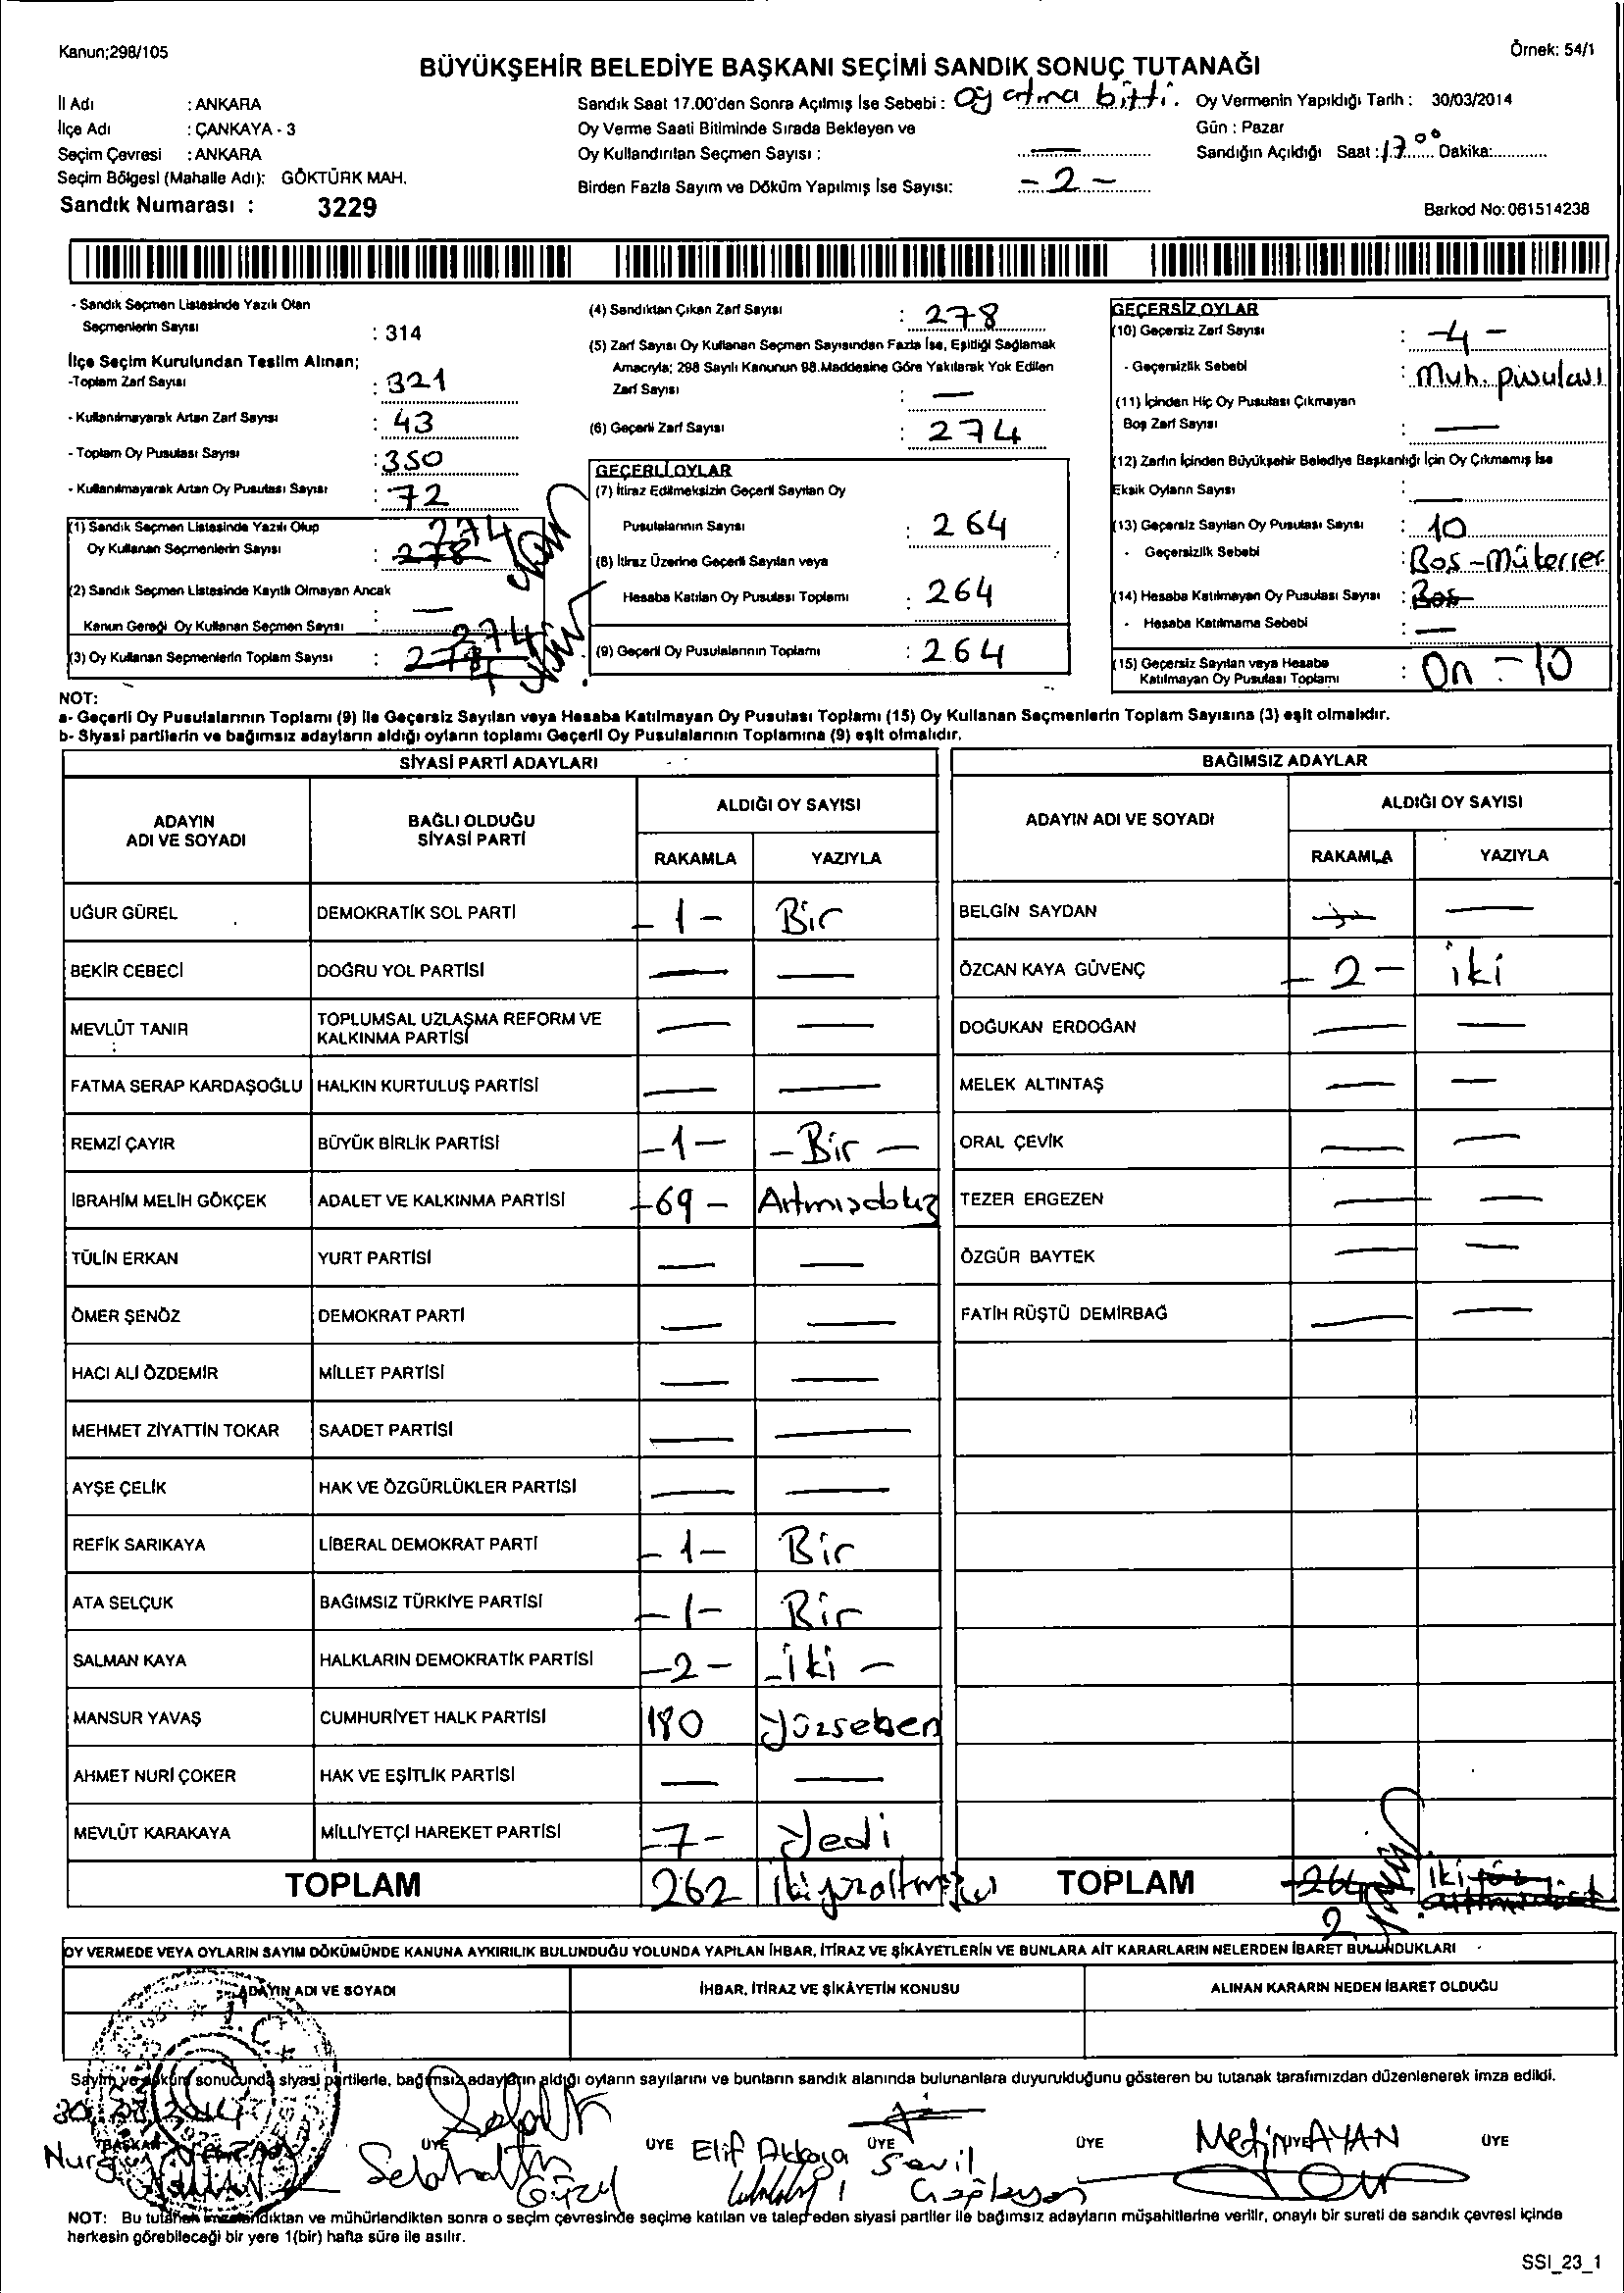 Kanun;298/105
Örnek: 54/1
BÜYÜKŞEHİR BELEDİYE BAŞKANI SEÇİMİ SANDIK SONUÇ TUTANAĞI
İl Adı : ANKARA
İlçe Adı : ÇANKAYA - 3
Seçim Çevresi : ANKARA
Seçim Bölgesi (Mahalle Adı): GÖKTÜRK MAH.
Sandık Numarası : 3229
Sandık Saat 17.00'den Sonra Açılmış İse Sebebi : Oy atma bitti.
Oy Verme Saati Bitiminde Sırada Bekleyen ve
Oy Kullandırılan Seçmen Sayısı : —
Birden Fazla Sayım ve Döküm Yapılmış İse Sayısı: - 2 -
Oy Vermenin Yapıldığı Tarih : 30/03/2014
Gün : Pazar
Sandığın Açıldığı Saat : 17 00 Dakika:
Barkod No:061514238
- Sandık Seçmen Listesinde Yazılı Olan
Seçmenlerin Sayısı : 314
İlçe Seçim Kurulundan Teslim Alınan;
-Toplam Zarf Sayısı : 321
- Kullanılmayarak Artan Zarf Sayısı : 43
- Toplam Oy Pusulası Sayısı : 350
- Kullanılmayarak Artan Oy Pusulası Sayısı : 72
(1) Sandık Seçmen Listesinde Yazılı Olup 274
Oy Kullanan Seçmenlerin Sayısı : 278
(2) Sandık Seçmen Listesinde Kayıtlı Olmayan Ancak
Kanun Gereği Oy Kullanan Seçmen Sayısı : —
274
(3) Oy Kullanan Seçmenlerin Toplam Sayısı : 278
(4) Sandıktan Çıkan Zarf Sayısı : 278
(5) Zarf Sayısı Oy Kullanan Seçmen Sayısından Fazla İse, Eşitliği Sağlamak
Amacıyla; 298 Sayılı Kanunun 98.Maddesine Göre Yakılarak Yok Edilen
Zarf Sayısı : —
(6) Geçerli Zarf Sayısı : 274
GEÇERLİ OYLAR
(7) İtiraz Edilmeksizin Geçerli Sayılan Oy
Pusulalarının Sayısı : 264
(8) İtiraz Üzerine Geçerli Sayılan veya
Hesaba Katılan Oy Pusulası Toplamı : 264
(9) Geçerli Oy Pusulalarının Toplamı : 264
GEÇERSİZ OYLAR
(10) Geçersiz Zarf Sayısı : -4 -
- Geçersizlik Sebebi : Muh. pusulası
(11) İçinden Hiç Oy Pusulası Çıkmayan
Boş Zarf Sayısı : —
(12) Zarfın İçinden Büyükşehir Belediye Başkanlığı İçin Oy Çıkmamış İse
Eksik Oyların Sayısı : —
(13) Geçersiz Sayılan Oy Pusulası Sayısı : 10
- Geçersizlik Sebebi : Bos - Mükerrer
(14) Hesaba Katılmayan Oy Pusulası Sayısı : Bos
- Hesaba Katılmama Sebebi : —
(15) Geçersiz Sayılan veya Hesaba
Katılmayan Oy Pusulası Toplamı : On - 10
NOT:
a- Geçerli Oy Pusulalarının Toplamı (9) ile Geçersiz Sayılan veya Hesaba Katılmayan Oy Pusulası Toplamı (15) Oy Kullanan Seçmenlerin Toplam Sayısına (3) eşit olmalıdır.
b- Siyasi partilerin ve bağımsız adayların aldığı oyların toplamı Geçerli Oy Pusulalarının Toplamına (9) eşit olmalıdır.
SİYASİ PARTİ ADAYLARI
ADAYIN ADI VE SOYADI
BAĞLI OLDUĞU SİYASİ PARTİ
ALDIĞI OY SAYISI
RAKAMLA YAZIYLA
UĞUR GÜREL DEMOKRATİK SOL PARTİ - 1 - Bir
BEKİR CEBECİ DOĞRU YOL PARTİSİ — —
MEVLÜT TANIR TOPLUMSAL UZLAŞMA REFORM VE KALKINMA PARTİSİ — —
FATMA SERAP KARDAŞOĞLU HALKIN KURTULUŞ PARTİSİ — —
REMZİ ÇAYIR BÜYÜK BİRLİK PARTİSİ - 1 - - Bir -
İBRAHİM MELİH GÖKÇEK ADALET VE KALKINMA PARTİSİ - 69 - Altmışdokuz
TÜLİN ERKAN YURT PARTİSİ — —
ÖMER ŞENÖZ DEMOKRAT PARTİ — —
HACI ALİ ÖZDEMİR MİLLET PARTİSİ — —
MEHMET ZİYATTİN TOKAR SAADET PARTİSİ — —
AYŞE ÇELİK HAK VE ÖZGÜRLÜKLER PARTİSİ — —
REFİK SARIKAYA LİBERAL DEMOKRAT PARTİ - 1 - Bir
ATA SELÇUK BAĞIMSIZ TÜRKİYE PARTİSİ - 1 - Bir
SALMAN KAYA HALKLARIN DEMOKRATİK PARTİSİ - 2 - - iki -
MANSUR YAVAŞ CUMHURİYET HALK PARTİSİ 180 Yüzseksen
AHMET NURİ ÇOKER HAK VE EŞİTLİK PARTİSİ — —
MEVLÜT KARAKAYA MİLLİYETÇİ HAREKET PARTİSİ - 7 - Yedi
TOPLAM 262 İkiyüzaltmışiki
BAĞIMSIZ ADAYLAR
ADAYIN ADI VE SOYADI
ALDIĞI OY SAYISI
RAKAMLA YAZIYLA
BELGİN SAYDAN — —
ÖZCAN KAYA GÜVENÇ - 2 - iki
DOĞUKAN ERDOĞAN — —
MELEK ALTINTAŞ — —
ORAL ÇEVİK — —
TEZER ERGEZEN — —
ÖZGÜR BAYTEK — —
FATİH RÜŞTÜ DEMİRBAĞ — —
TOPLAM 264 İkiyüz altmışdört
2
OY VERMEDE VEYA OYLARIN SAYIM DÖKÜMÜNDE KANUNA AYKIRILIK BULUNDUĞU YOLUNDA YAPILAN İHBAR, İTİRAZ VE ŞİKÂYETLERİN VE BUNLARA AİT KARARLARIN NELERDEN İBARET BULUNDUKLARI
ADAYIN ADI VE SOYADI
İHBAR, İTİRAZ VE ŞİKÂYETİN KONUSU
ALINAN KARARIN NEDEN İBARET OLDUĞU
Sayım ve döküm sonucunda siyasi partilerle, bağımsız adayların aldığı oyların sayılarını ve bunların sandık alanında bulunanlara duyurulduğunu gösteren bu tutanak tarafımızdan düzenlenerek imza edildi.
BAŞKAN ÜYE ÜYE ÜYE ÜYE ÜYE ÜYE
Selahattin Güzel
Elif Akkaya
Sevil
Metin AYAN
NOT: Bu tutanak imzalandıktan ve mühürlendikten sonra o seçim çevresinde seçime katılan ve talep eden siyasi partiler ile bağımsız adayların müşahitlerine verilir, onaylı bir sureti de sandık çevresi içinde
herkesin görebileceği bir yere 1(bir) hafta süre ile asılır.
SSI_23_1